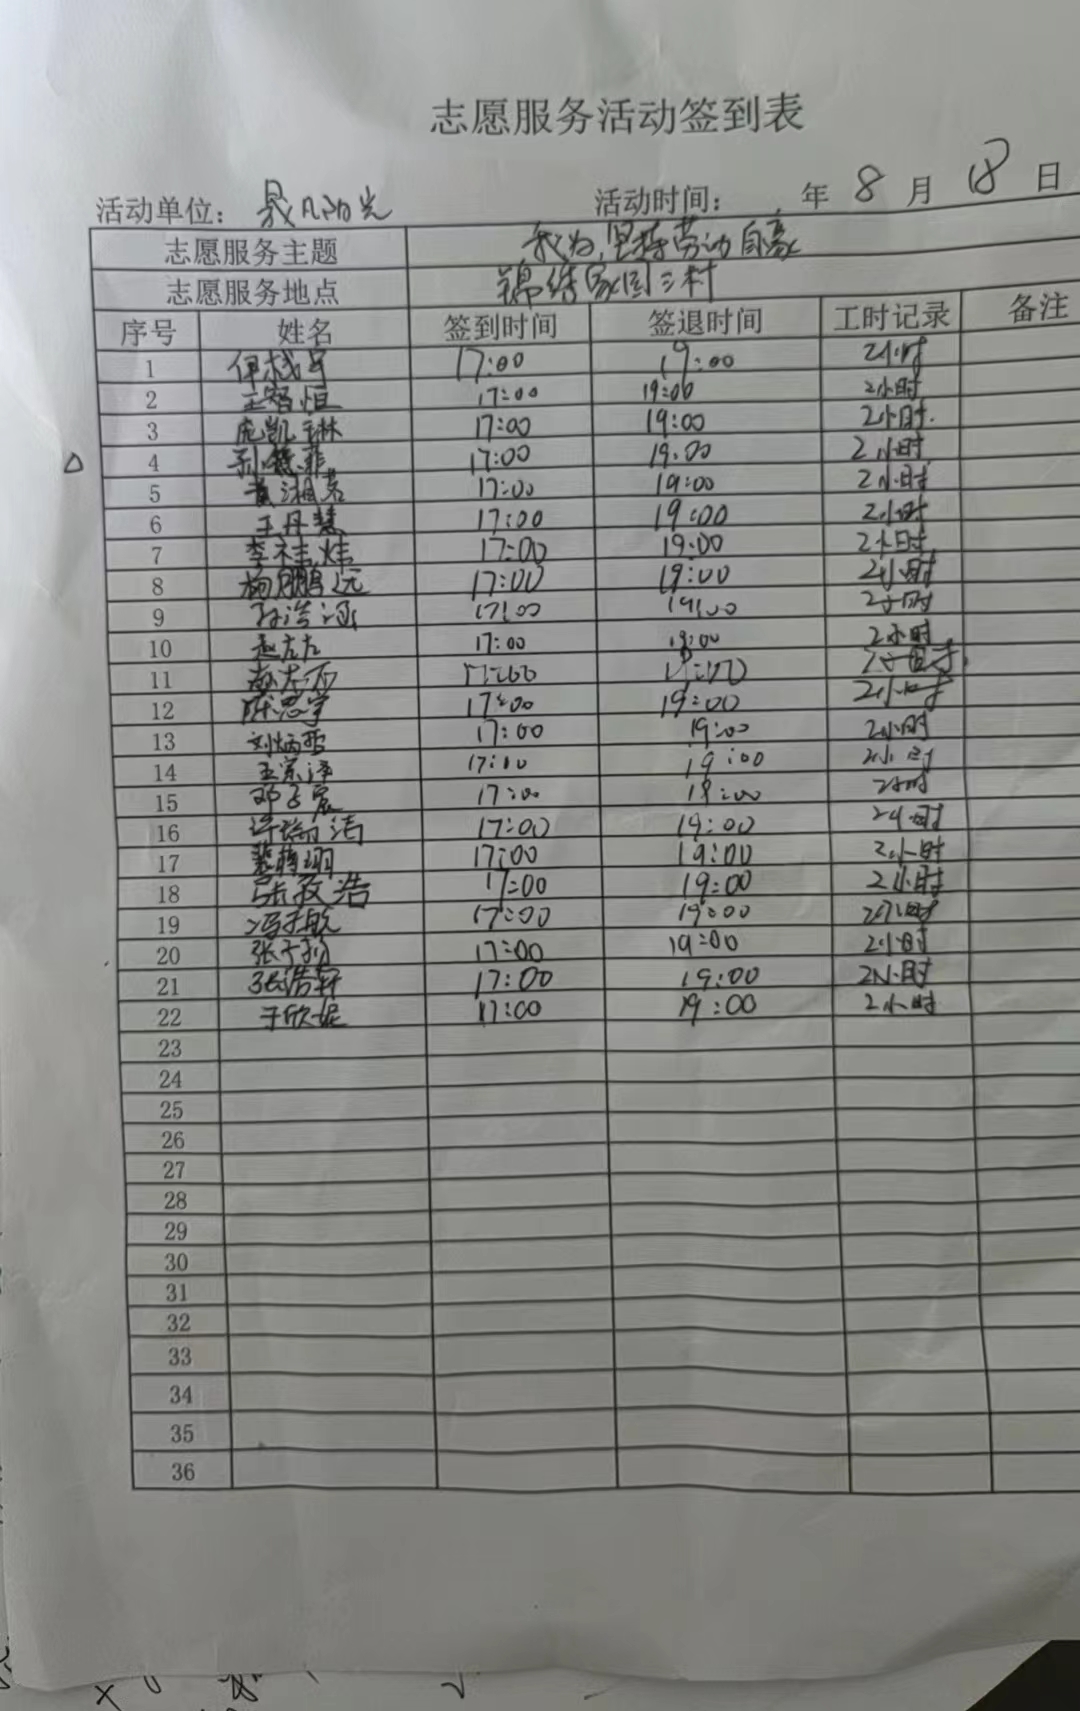 志愿服务活动签到表
活动单位: 阳光 活动时间: 年 8 月 18 日
志愿服务主题 我为坚持劳动自豪
志愿服务地点 锦绣家园三村
序号 姓名 签到时间 签退时间 工时记录 备注
1 17:00 19:00 2小时
2 王智恒 17:00 19:00 2小时
3 庞凯琳 17:00 19:00 2小时.
△ 4 17:00 19:00 2小时
5 黄湘茗 17:00 19:00 2小时
6 王丹慧 17:00 19:00 2小时
7 17:00 19:00 2小时
8 杨鹏远 17:00 19:00 2小时
9 孙浩涵 17:00 19:00 2小时
10 赵左左 17:00 19:00 2小时
11 赵右右 17:00 19:00
12 陈思宇 17:00 19:00 2小时
13 刘炳哲 17:00 19:00 2小时
14 王宗泽 17:00 19:00 2小时
15 邓子宸 17:00 19:00 2小时
16 许瑞洁 17:00 19:00 2小时
17 17:00 19:00 2小时
18 17:00 19:00 2小时
19 冯子航 17:00 19:00 2小时
20 张子扬 17:00 19:00 2小时
21 张浩轩 17:00 19:00 2小时
22 于欣妮 17:00 19:00 2小时
23
24
25
26
27
28
29
30
31
32
33
34
35
36